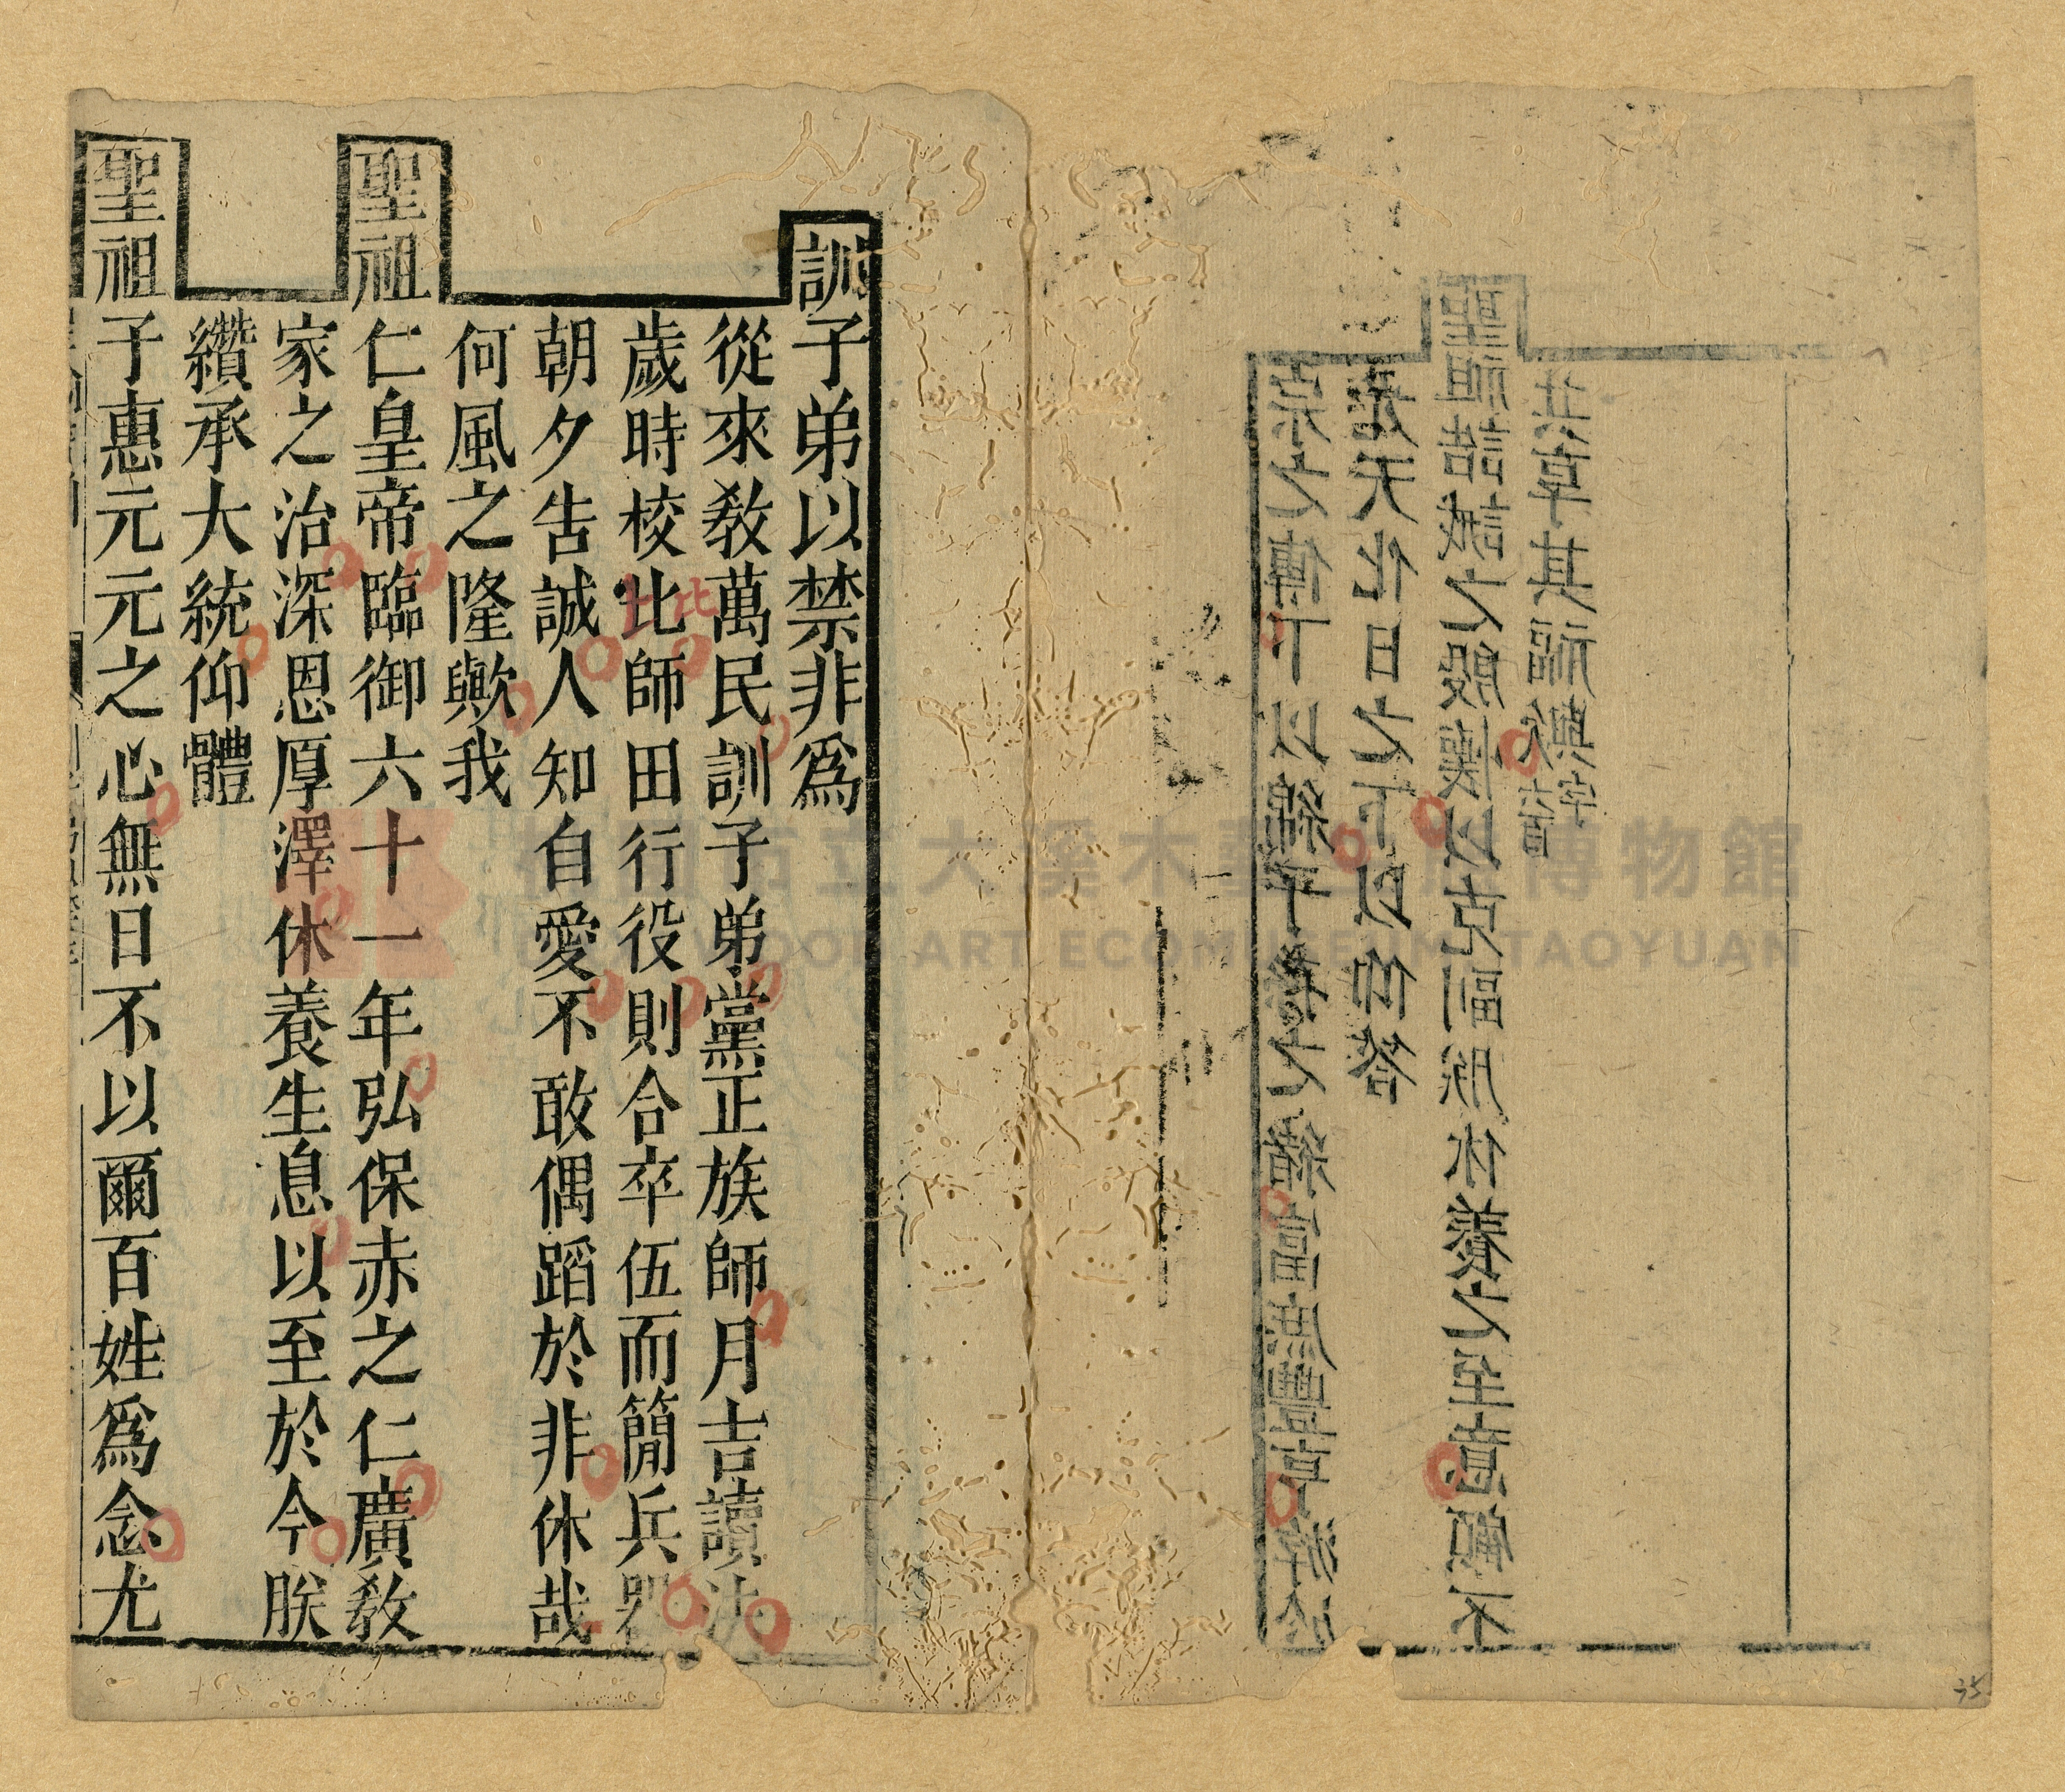 訓子弟以禁非爲
從來敎萬民訓子弟黨正族師月吉讀法
歲時校比師田行役則合卒伍而簡兵器
朝夕告誠人知自愛不敢偶蹈於非休哉
何風之隆歟我
聖祖仁皇帝臨御六十一年弘保赤之仁廣敎
家之治深恩厚澤休養生息以至於今朕
纘承大統仰體
聖祖子惠元元之心無日不以爾百姓爲念尤
比
宗之傳下以綿子孫之緒富庶豐亨游於
光天化日之下以仰答
聖祖誥誡之殷懷以克副朕休養之至意顧不
共享其福歟
大溪木藝生態博物館
ART ECOMUSEUM, TAOYUAN
35